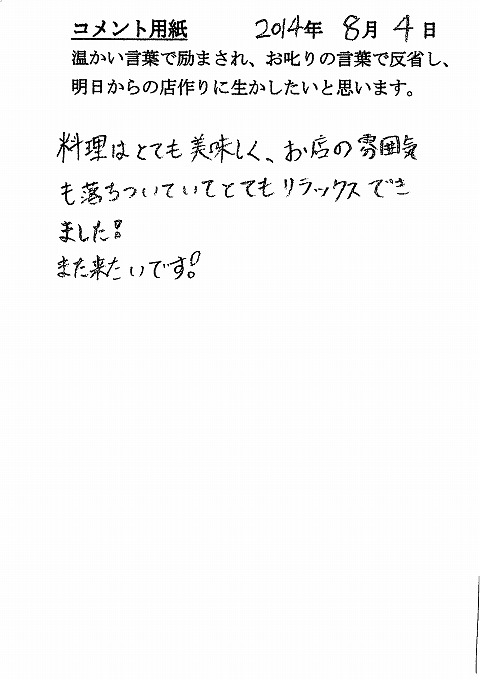 コメント用紙 2014年 8月 4日
温かい言葉で励まされ、お叱りの言葉で反省し、
明日からの店作りに生かしたいと思います。
料理はとても美味しく、お店の雰囲気
も落ちついていてとてもリラックスでき
ました!
また来たいです!